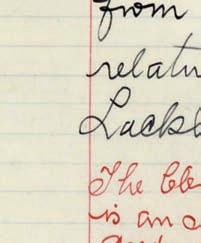 from
relatu
Lackb
The ble
is an c